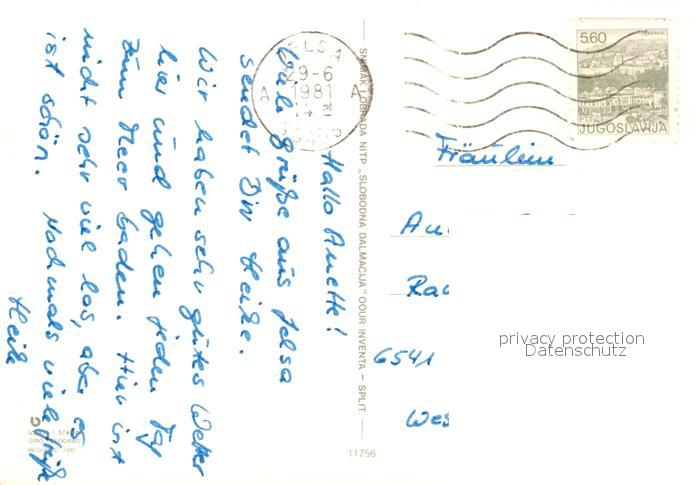 Hallo Anette!
Viele Grüße aus Jelsa
sendet Dir Heike.
Wir haben sehr gutes Wetter
hier und gehen jeden Tag
zum Meer baden. Hier ist
nicht sehr viel los, aber es
ist schön. Nochmals viele Grüße
Heike
SNIMAK LOBRADA NITP „SLOBODNA DALMACIJA" OOUR INVENTA – SPLIT
11756
JELSA
29-6
1981
A A
5.60
PTT
JUGOSLAVIJA
Fräulein
An
Ra
6541
Wes
privacy protection
Datenschutz